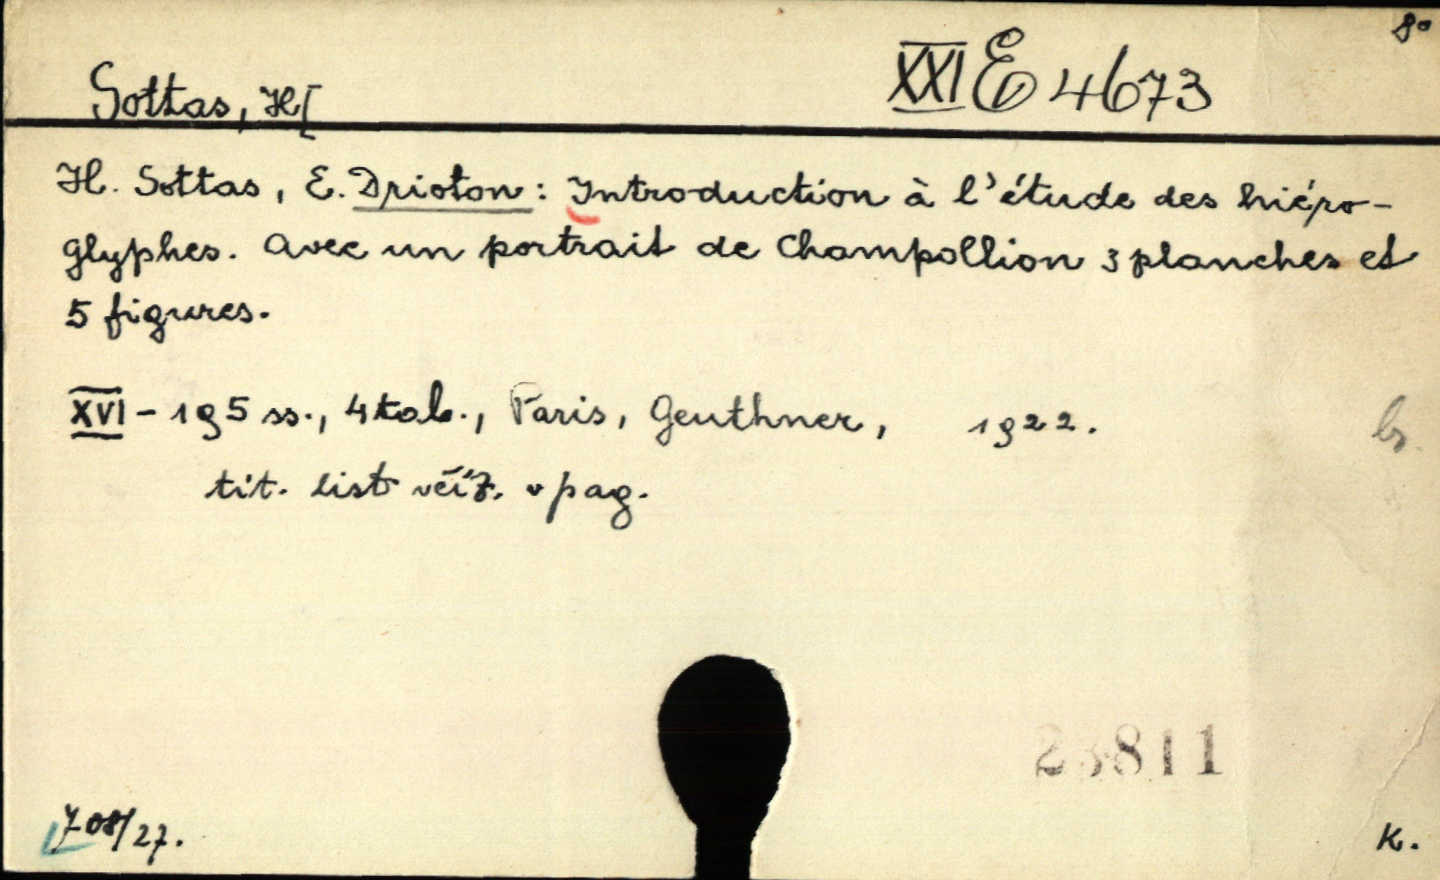 8°
Sottas, H[
XXI E 4673
H. Sottas, E. Drioton: Introduction à l'étude des hiéro-
glyphes. Avec un portrait de Champollion 3 planches et
5 figures.
XVI - 195 ss., 4 tab., Paris, Geuthner, 1922.
tit. list v pag.
br.
23811
708/27.
K.